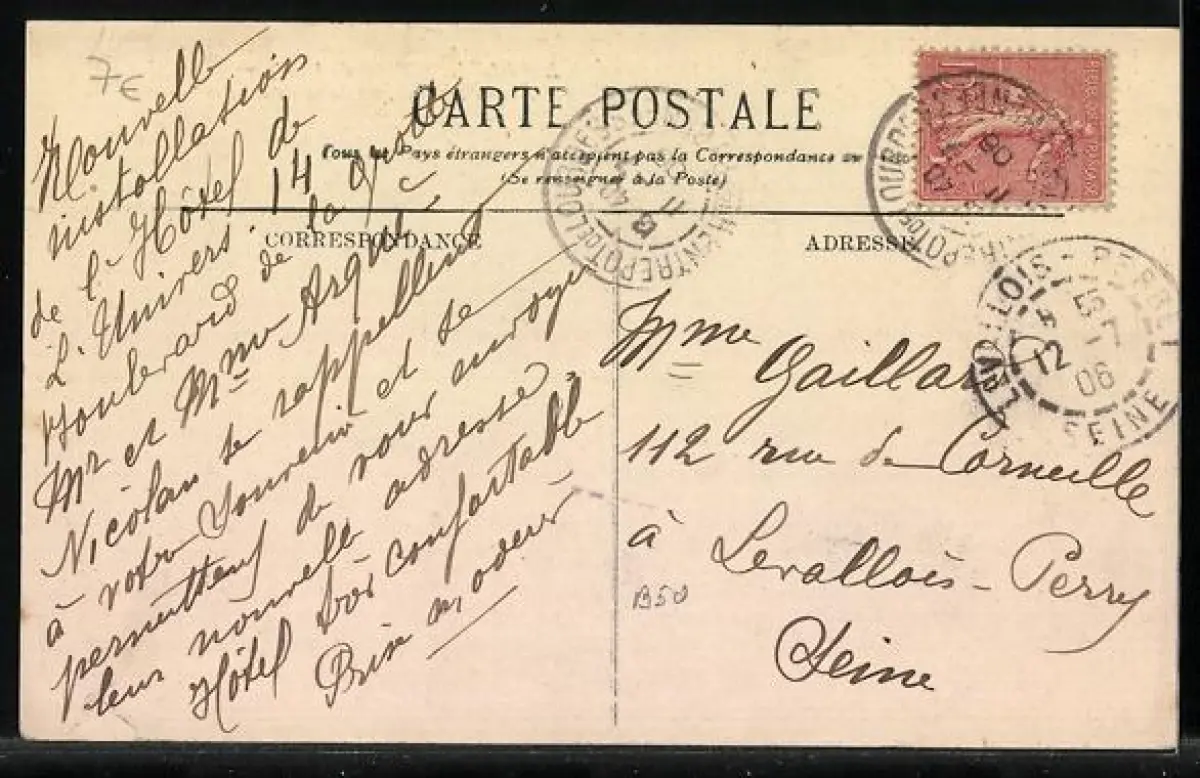 7€
CARTE POSTALE
Tous les Pays étrangers n'acceptent pas la Correspondance au
(Se renseigner à la Poste)
CORRESPONDANCE
ADRESSE
Nouvelle
installation
de l'Hôtel de
L'Univers. 14
Boulevard de la
Mr et Mme
Nicolau se rappellent
à votre souvenir et se
permettent de vous envoyer
leur nouvelle adresse.
Hôtel très confortable
Prix
Mme Gaillard
112 rue de Corneille
à Levallois-Perry
Seine
B50
LEVALLOIS-PERRET
12
06
SEINE